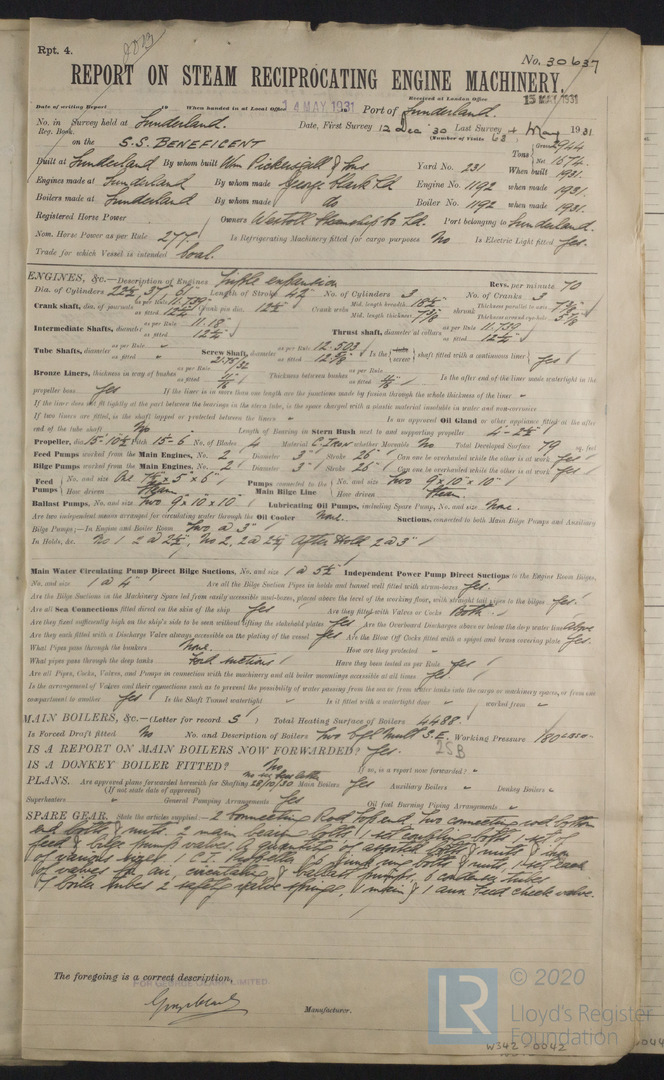 Rpt. 4.
No. 30637
REPORT ON STEAM RECIPROCATING ENGINE MACHINERY.
Received at London Office
15 MAY 1931
Date of writing Report When handed in at Local Office 14 MAY. 1931 Port of Sunderland.
No. in Survey held at Sunderland. Date, First Survey 12 Dec '30 Last Survey 4 May 1931
Reg. Book. (Number of Visits 63
on the S.S. BENEFICENT Tons Gross 2944
Net 1674
Built at Sunderland By whom built Wm Pickersgill & Sons Yard No. 231 When built 1931.
Engines made at Sunderland By whom made George Clark Ld Engine No. 1192 when made 1931.
Boilers made at Sunderland By whom made do Boiler No. 1192 when made 1931.
Registered Horse Power Owners Westoll Steamship Co Ld. Port belonging to Sunderland.
Nom. Horse Power as per Rule 277 Is Refrigerating Machinery fitted for cargo purposes No Is Electric Light fitted Yes.
Trade for which Vessel is intended Coal.
ENGINES, &c.—Description of Engines Triple expansion Revs. per minute 70
Dia. of Cylinders 22½, 37, 61" Length of Stroke 42" No. of Cylinders 3 No. of Cranks 3
Crank shaft, dia. of journals as per Rule 11.739" as fitted Crank pin dia. Crank webs Mid. length breadth Mid. length thickness shrunk Thickness parallel to axis Thickness around eye-hole
Intermediate Shafts, diameter as per Rule 11.18" as fitted Thrust shaft, diameter at collars as per Rule 11.739 as fitted
Tube Shafts, diameter as per Rule as fitted Screw Shaft, diameter as per Rule 12.503 as fitted Is the screw shaft fitted with a continuous liner Yes
Bronze Liners, thickness in way of bushes as per Rule as fitted Thickness between bushes as per Rule as fitted Is the after end of the liner made watertight in the
propeller boss Yes If the liner is in more than one length are the junctions made by fusion through the whole thickness of the liner "
If the liner does not fit tightly at the part between the bearings in the stern tube, is the space charged with a plastic material insoluble in water and non-corrosive
If two liners are fitted, is the shaft lapped or protected between the liners Is an approved Oil Gland or other appliance fitted at the after
end of the tube shaft No Length of Bearing in Stern Bush next to and supporting propeller 4-2½"
Propeller, dia. 15-10½" Pitch 15-6" No. of Blades 4 Material C. Iron whether Moveable No Total Developed Surface 79 sq. feet
Feed Pumps worked from the Main Engines, No. 2 Diameter 3" Stroke 26" Can one be overhauled while the other is at work Yes
Bilge Pumps worked from the Main Engines, No. 2 Diameter 3" Stroke 26" Can one be overhauled while the other is at work Yes
Feed Pumps No. and size One How driven Steam Pumps connected to the Main Bilge Line No. and size Two 9" x 10" x 10" How driven Steam.
Ballast Pumps, No. and size Two 9" x 10" x 10" Lubricating Oil Pumps, including Spare Pump, No. and size None.
Are two independent means arranged for circulating water through the Oil Cooler None. Suctions, connected to both Main Bilge Pumps and Auxiliary
Bilge Pumps;—In Engine and Boiler Room Two @ 3"
In Holds, &c. No 1 2 @ 2½", No 2, 2 @ 2½" After Hold 2 @ 3"
Main Water Circulating Pump Direct Bilge Suctions, No. and size 1 @ 5½" Independent Power Pump Direct Suctions to the Engine Room Bilges,
No. and size 1 @ 4" Are all the Bilge Suction Pipes in holds and tunnel well fitted with strum-boxes Yes.
Are the Bilge Suctions in the Machinery Space led from easily accessible mud-boxes, placed above the level of the working floor, with straight tail pipes to the bilges Yes.
Are all Sea Connections fitted direct on the skin of the ship Yes Are they fitted with Valves or Cocks Both.
Are they fixed sufficiently high on the ship's side to be seen without lifting the stokehold plates Yes Are the Overboard Discharges above or below the deep water line Above
Are they each fitted with a Discharge Valve always accessible on the plating of the vessel Yes Are the Blow Off Cocks fitted with a spigot and brass covering plate Yes.
What Pipes pass through the bunkers None. How are they protected
What pipes pass through the deep tanks Ford suctions Have they been tested as per Rule Yes
Are all Pipes, Cocks, Valves, and Pumps in connection with the machinery and all boiler mountings accessible at all times Yes
Is the arrangement of Valves and their connections such as to prevent the possibility of water passing from the sea or from water tanks into the cargo or machinery spaces, or from one
compartment to another Yes Is the Shaft Tunnel watertight Is it fitted with a watertight door worked from
MAIN BOILERS, &c.—(Letter for record S ) Total Heating Surface of Boilers 4488.
Is Forced Draft fitted No No. and Description of Boilers Two Cyl. Mult S.E. Working Pressure 180
2SB
IS A REPORT ON MAIN BOILERS NOW FORWARDED? Yes.
IS A DONKEY BOILER FITTED? No If so, is a report now forwarded?
PLANS. Are approved plans forwarded herewith for Shafting 28/10/30 Main Boilers Yes Auxiliary Boilers " Donkey Boilers "
(If not state date of approval)
Superheaters " General Pumping Arrangements Yes Oil fuel Burning Piping Arrangements "
SPARE GEAR. State the articles supplied:— 2 Connecting Rod Top end, two connecting rod bottom
end bolts & nuts. 2 main bearing bolts, 1 set coupling bolts, 1 set of
feed & bilge pump valves. A quantity of assorted bolts & nuts & iron
of various sizes. 1 C.I. propeller, junk ring bolts & nuts, 1 set each
of valves for air, circulating & ballast pumps, 6 condenser tubes
boiler tubes 2 safety valve springs, 1 main & 1 aux. feed check valve.
The foregoing is a correct description,
FOR GEORGE CLARK, LIMITED.
Manufacturer.
LR
© 2020
Lloyd's Register
Foundation
W342-0042